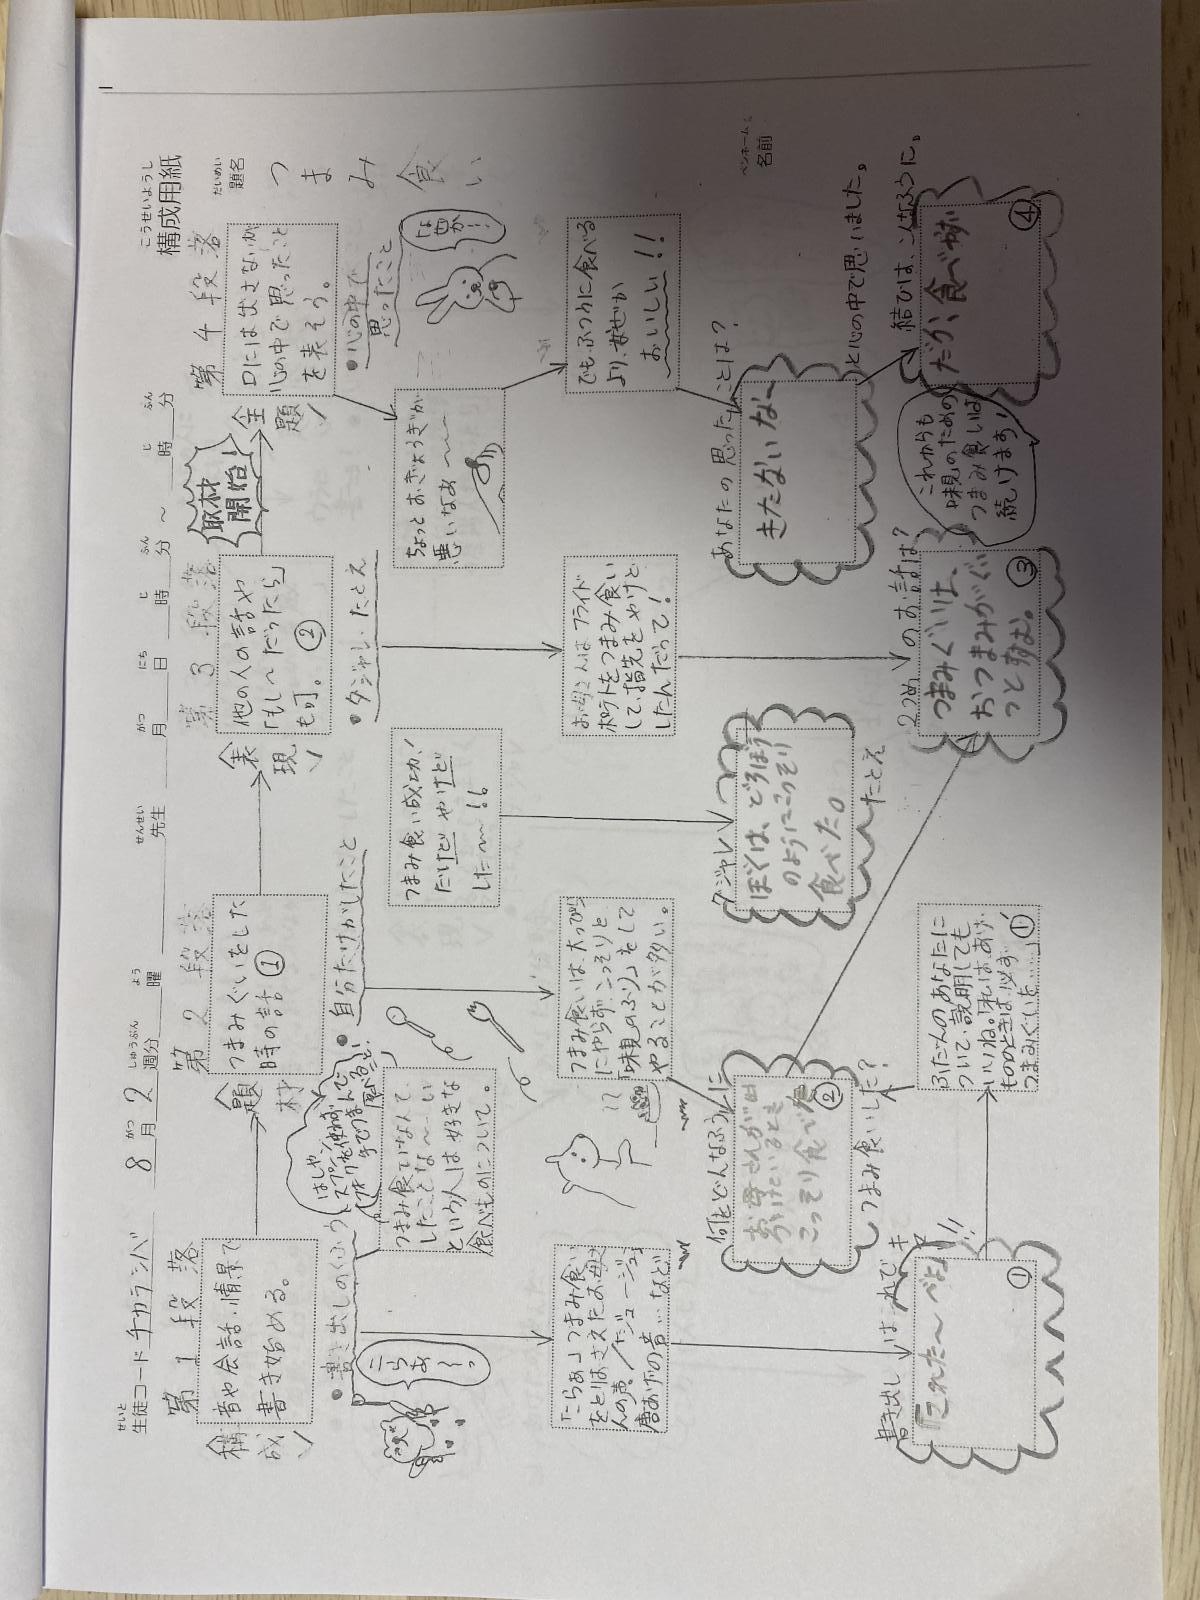 構成用紙
こうせいようし
題名
だいめい
つまみ食い
ペンネーム
名前
生徒コード チカラシバ 8月2週分 曜 先生 月 日 時 分 〜 時 分
第1段落
第2段落
第3段落
第4段落
構成
音や会話、情景で
書き始める。
題材
つまみぐいをした
時の話①
表現
他の人の話や
「もし〜だったら」
も可。②
取材
開始
全題
口には出さないが
心の中で思ったこと
を表そう。
・書き出しのくふう
こらあ〜っ
「こらぁ」つまみ食い
をとりおさえたお母さ
んの声/「ジュージュー」
唐あげの音…など
書き出しは
「これた〜べよ!!
①
はしや、
スプーン、
フォークを使わず
手でつまんで
食べること!
つまみ食いなんて、
したことな〜い
という人は好きな
食べものについて。
・自分だけがしたこと
つまみ食いは、大っぴら
にやらず、こっそりと
「味見のふり」をして
やることが多い。
何をどんなふうに
お母さんが出
かけているとき
こっそり食べた
②
つまみ食いした?
ふだんのあなたに
ついて、説明しても
いいね。「ぼくは、あげ
もののときは、必ず
つまみぐいを……」①'
つまみ食い成功!
だけど やけど
した〜!!
ダジャレ
ぼくは、どろぼう
のようにこっそり
食べた。
たとえ
・ダジャレ、たとえ
お母さんは フライド
ポテトをつまみ食い
して、指先をやけど
したんだって!
2つめのお話は?
つまみぐいは、
おつまみがぐい
っと
③
・心の中で
思ったこと
なぜか…
ちょっとおぎょうぎが
悪いなあ〜〜
でも、ふつうに食べる
より、なぜか
おいしい!!
あなたの思ったことは?
きたないな〜
と心の中で思いました。
結びは、こんなふうに。
だが、食べ
④
これからも
味見のための
つまみ食いは
続けます!